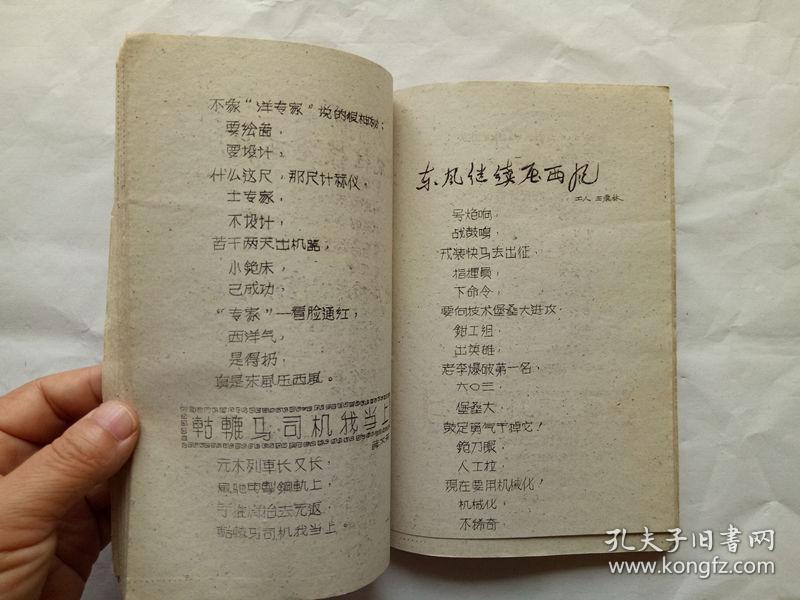 不象“洋专家”说的模棱
要绘茴，
要设计，
什么这尺，那尺计标仪，
土专家，
不设计，
苦干两天出机器，
小铇床，
己成功，
“专家”一看脸通红，
西洋气，
是得扔，
真是东風压西風。
轱辘马司机我当上
元木列車长又长，
風驰电掣鋼軌上，
去无返
轱辘马司机我当上。
东风继续压西风
工人 王
号炮响，
战鼓鳴，
戎装快马去出征，
指揮員，
下命令，
要向技术堡垒大进攻，
鉗工组，
出英雄，
老李爆破第一名，
六〇三，
堡垒大，
鼓足勇气干掉它！
铇刀服，
人工拉，
現在要用机械化！
机械化，
不稀奇，
孔夫子旧书网
www.kongfz.com